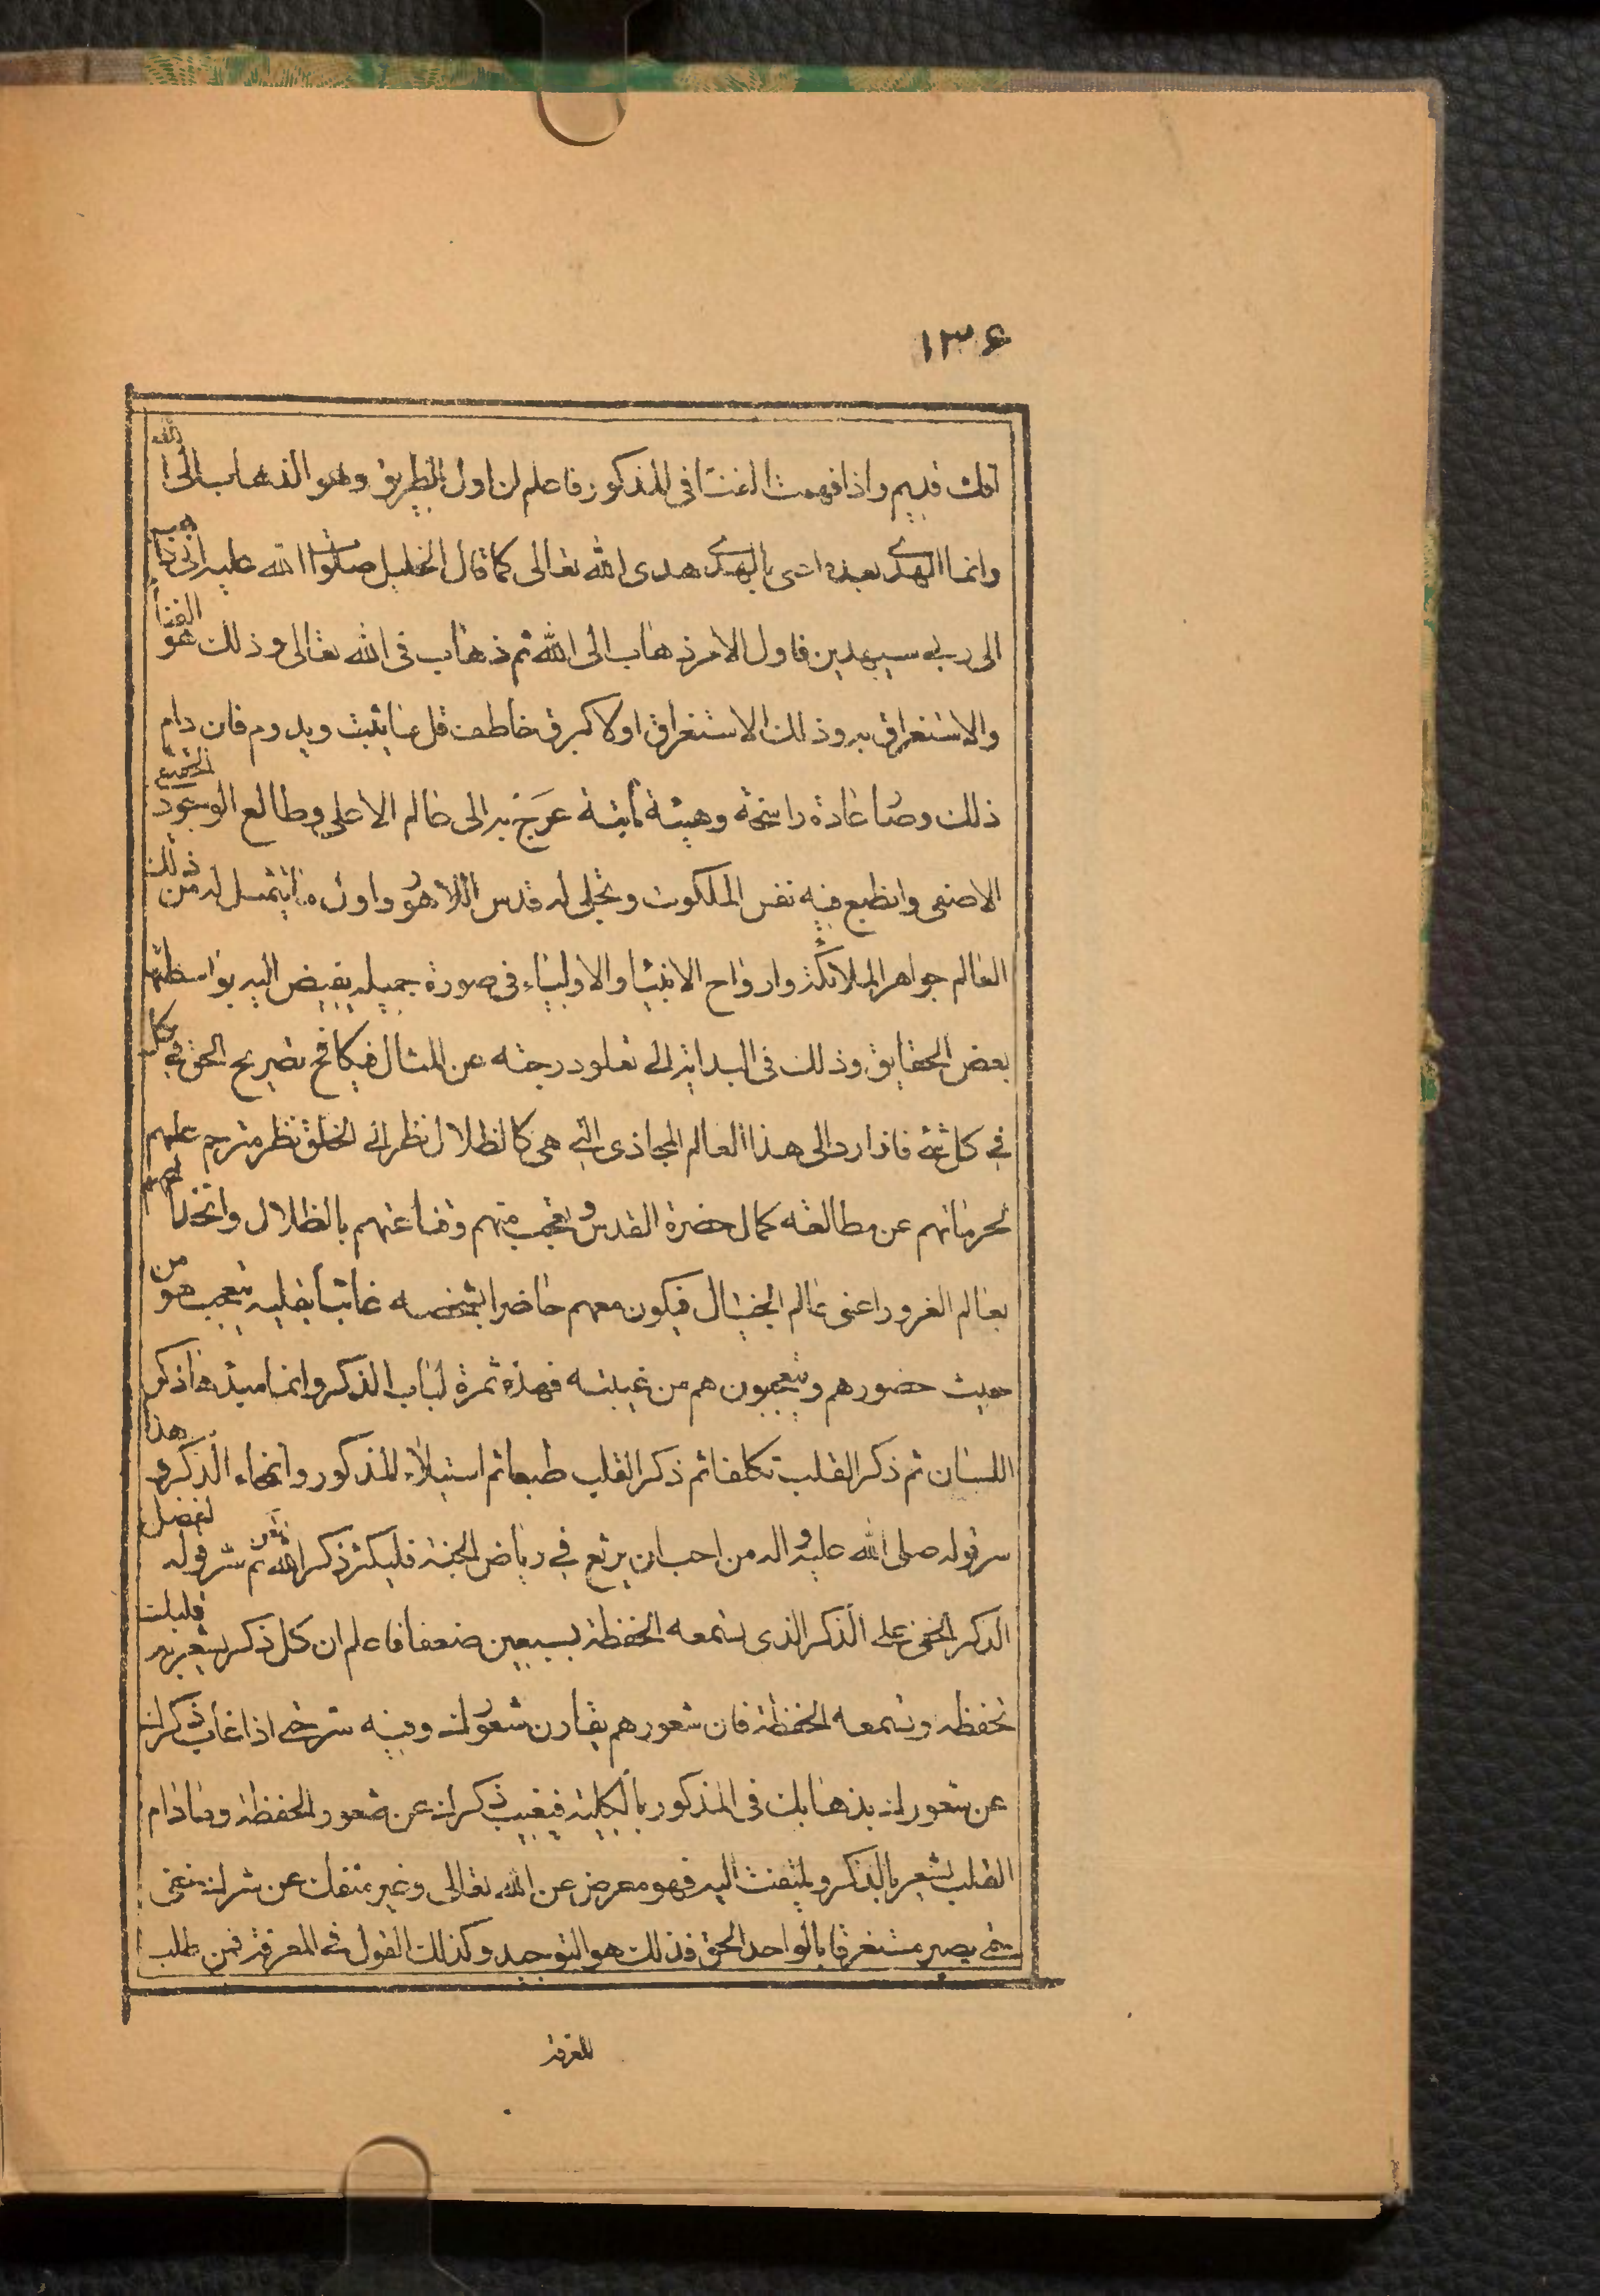 ١٣۶
افك قديم واذا فهمت الفناء فى المذكور فاعلم ان اول الطريق وهو الذهاب الى الله
وانما الهدى بعده اعنى بالهدى هدى الله تعالى كما قال الخليل صلوات الله عليه انى ذاهب
الى ربى سيهدين فاول الامر ذهاب الى الله ثم ذهاب فى الله تعالى وذلك هو الفناء
والاستغراق به وذلك الاستغراق اولا كبرق خاطف قل ما يثبت ويدوم فان دام
ذلك وصار عادة راسخة وهيئة ثابتة عرج به الى عالم الاعلى وطالع الوجود الحقيقى
الاصفى وانطبع فيه نقش الملكوت وتجلى له قدس اللاهوت واول ما يتمثل له من ذلك
العالم جواهر الملائكة وارواح الانبياء والاولياء فى صورة جميله يفيض اليه بواسطتها
بعض الحقايق وذلك فى البداية الى تعلو درجته عن المثال فيكافح بصريح الحق فى كل
فى كل شئ فاذا رد الى هذا العالم المجازى التى هى كالظلال نظر الى الخلق نظر مترحم عليهم
لحرمانهم عن مطالعة كمال حضرة القدس وتعجب منهم وقناعتهم بالظلال وانخداعهم
بعالم الغرور اعنى عالم الخيال فيكون معهم حاضرا بشخصه غائبا بقلبه يتعجب هو من
حيث حضورهم ويتعجبون هم من غيبته فهذه ثمرة لباب الذكر وانما مبدئها ذكر
اللسان ثم ذكر القلب تكلفا ثم ذكر القلب طبعا ثم استيلاء المذكور وانمحاء الذكر وهذا
سر قوله صلى الله عليه واله من احب ان يرتع فى رياض الجنة فليكثر ذكر الله ثم سر قوله لفضل
الذكر الخفى على الذكر الذى تسمعه الحفظة بسبعين ضعفا فاعلم ان كل ذكر يشعر به قلبك
تحفظه وتسمعه الحفظة فان شعورهم يقارن شعورك وفيه سر حتى اذا غاب ذكرك
عن شعورك بذهابك فى المذكور بالكلية فيغيب ذكرك عن شعور الحفظة وما دام
القلب يشعر بالذكر ويلتفت اليه فهو معرض عن الله تعالى وغير منفك عن شرك خفى
حتى يصير مستغرقا بالواحد الحق فذلك هو التوحيد وكذلك القول فى المعرفة فمن طلب
المعرفة